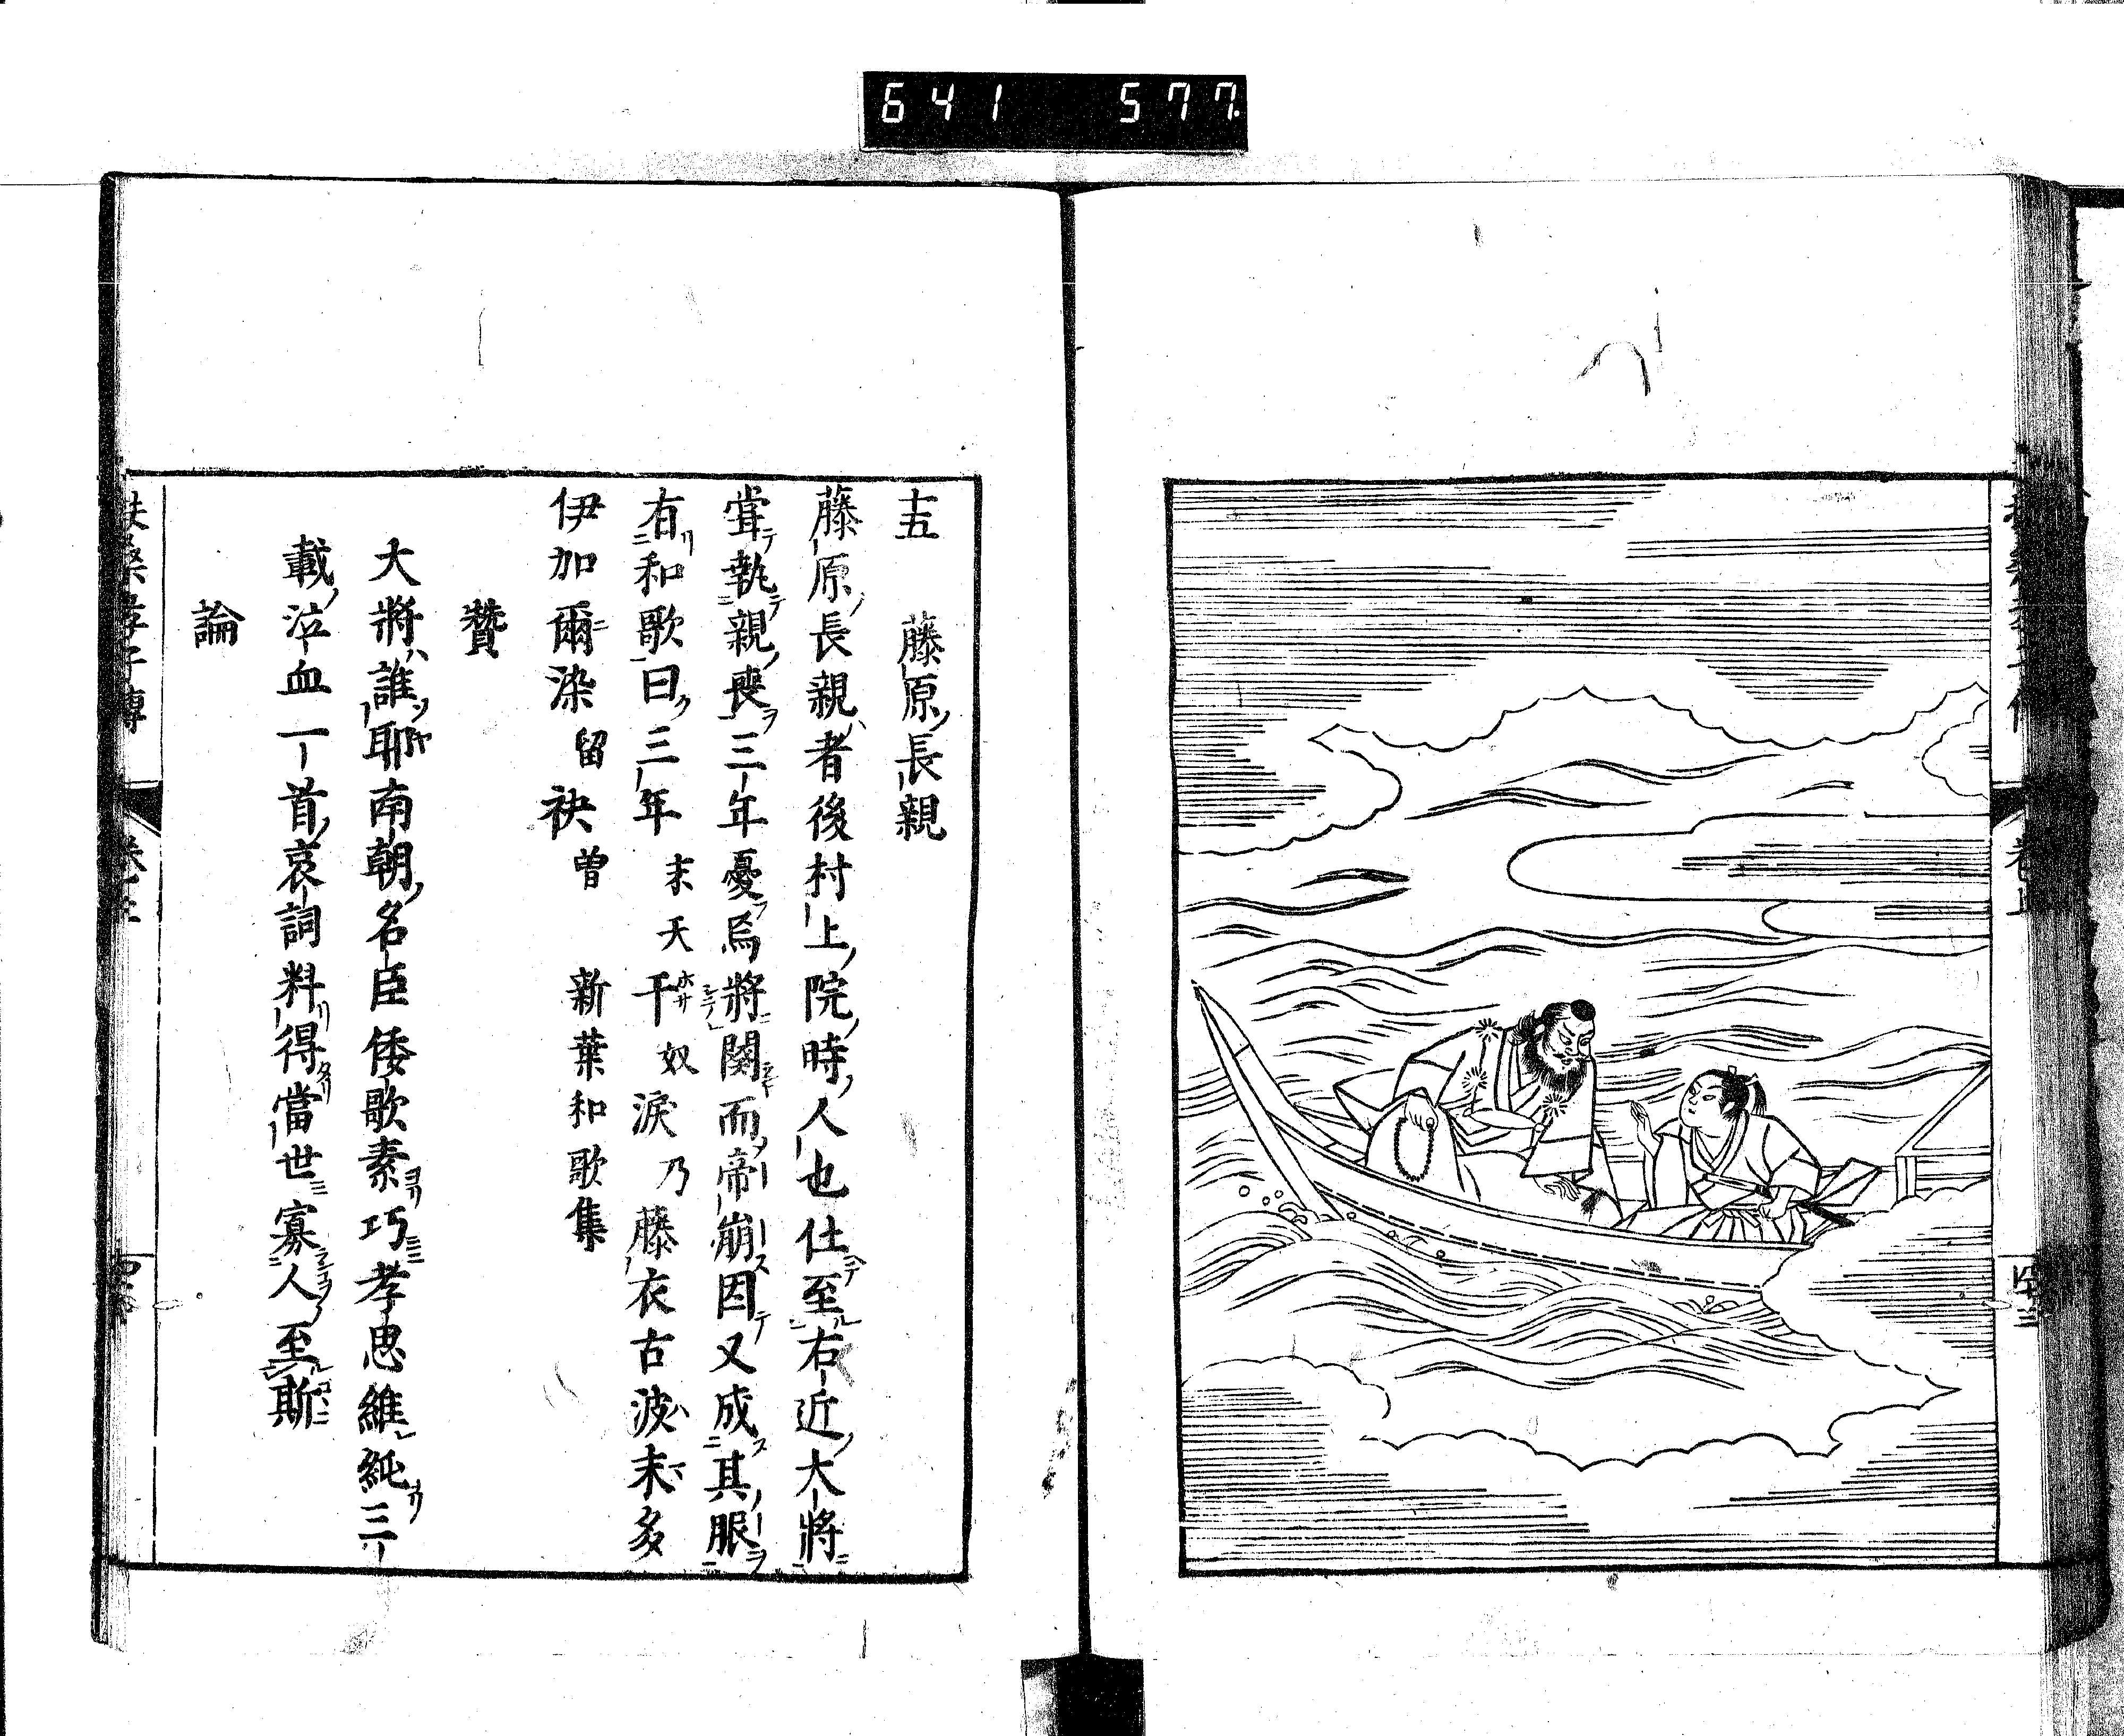 641 577
十五 藤原長親
藤原長親者後村上院時人也仕至右近大將
甞執親喪三年憂焉將闋而帝崩因又成其服
有和歌曰三年末天干奴淚乃藤衣古波末多
伊加爾染留袂曽 新葉和歌集
贊
大將誰耶南朝名臣倭歌素巧孝思維純三
載泣血一首哀詞料得當世寡人至斯
論
扶桑孝子傳